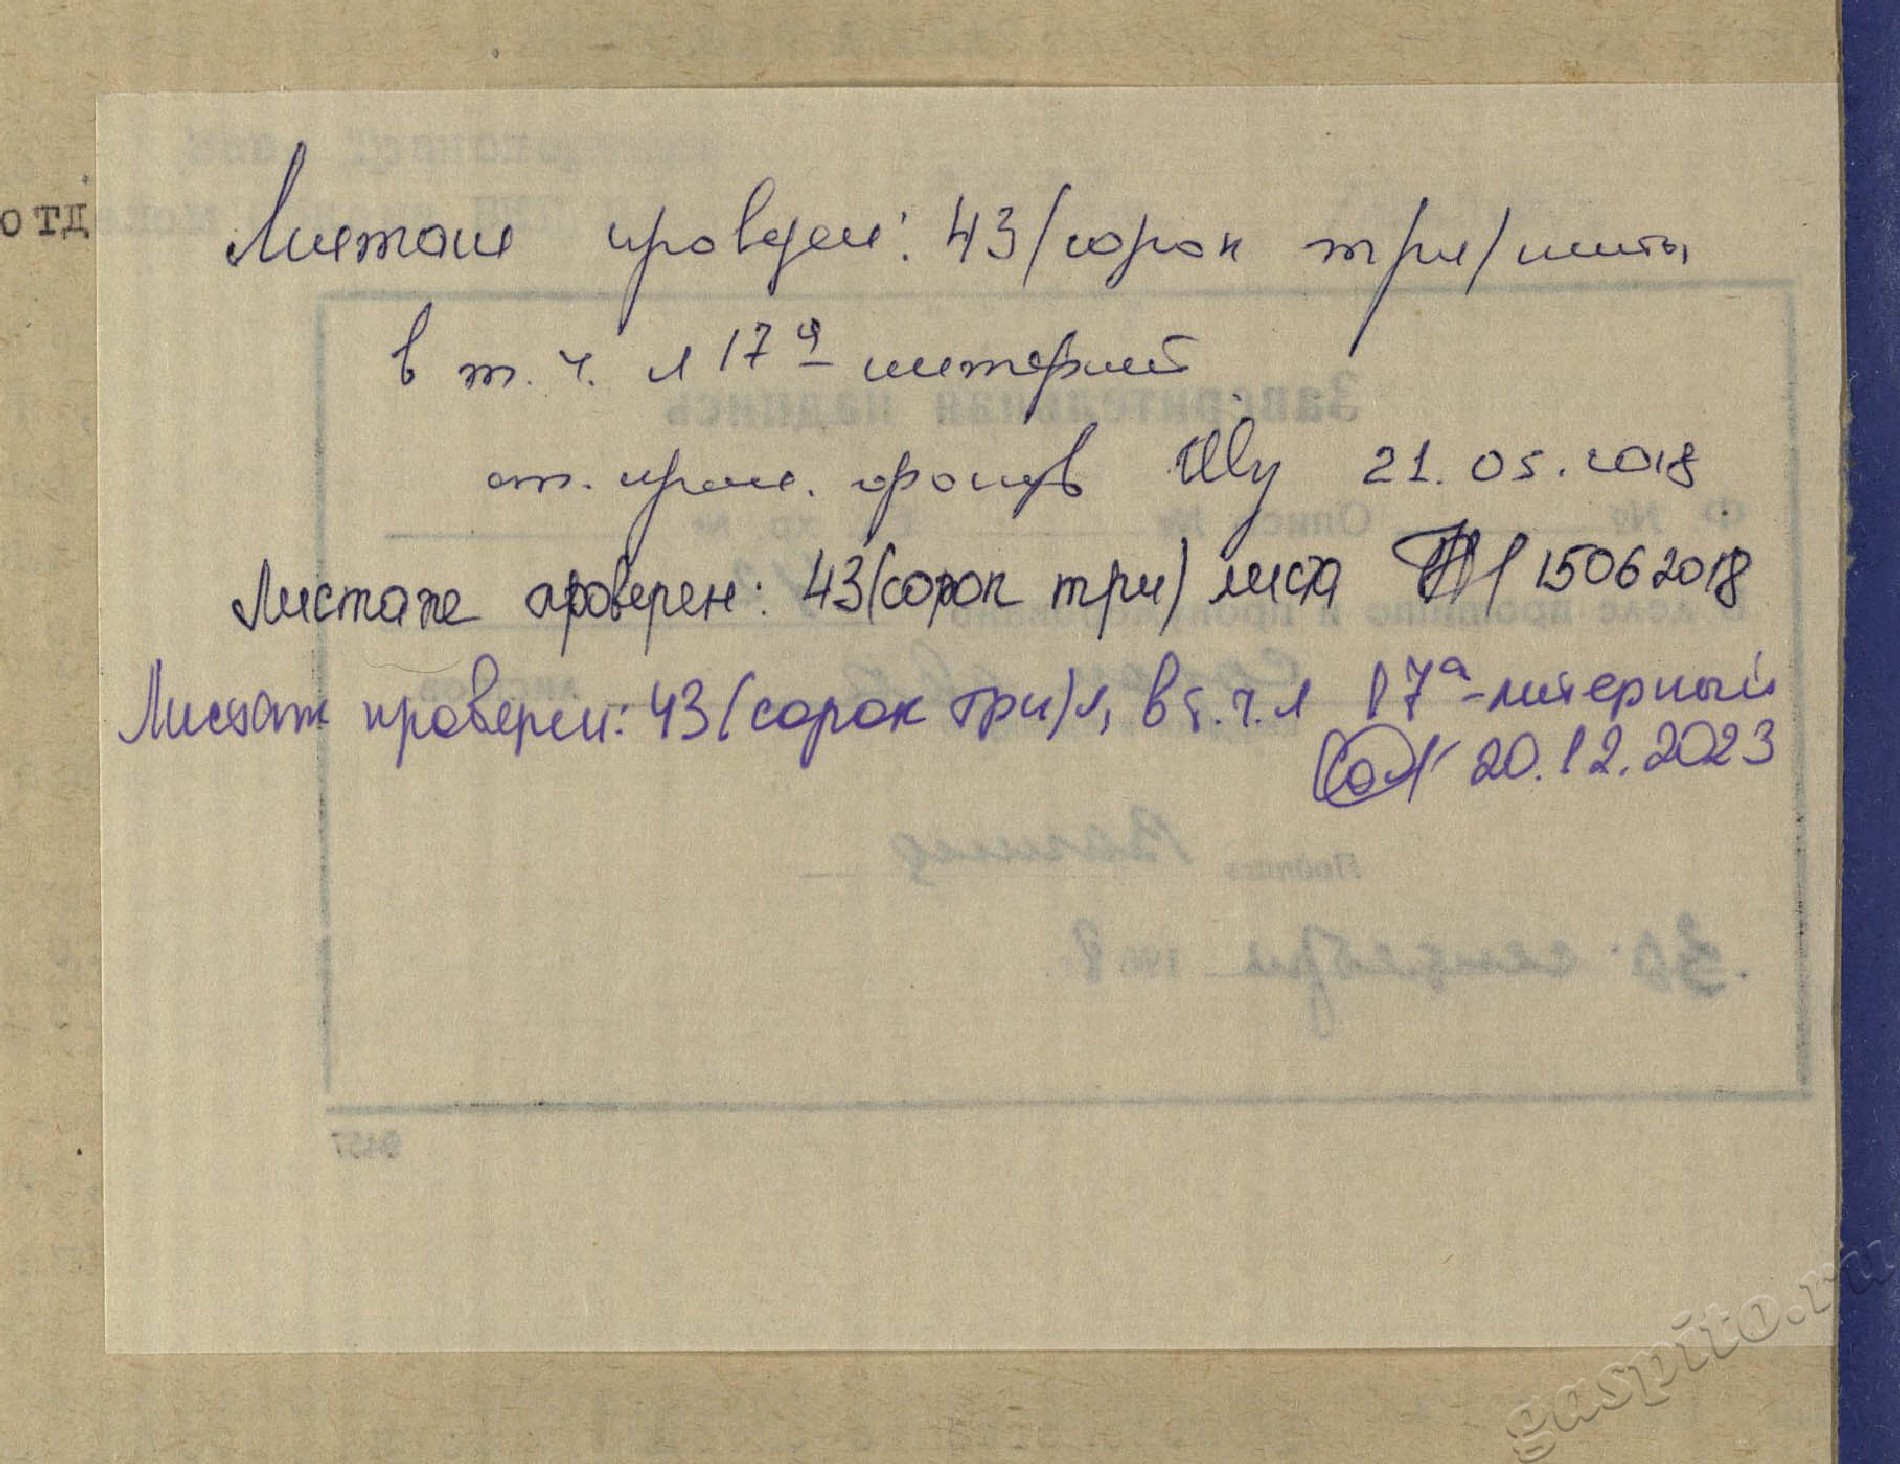 отд
Листаж проверен: 43/сорок три/листа
в т. ч. л 17а литерный
21.05.2018
Листаже проверен: 43(сорок три) листа 15062018
Листаж проверен: 43(сорок три)л, в т.ч.л 17а-литерный
20.12.2023
Заверительная надпись
Ф №
Опись №
ед. хр. №
В деле прошито и пронумеровано
листов
Подпись
30 сентября 1968
9457
gaspito.ru